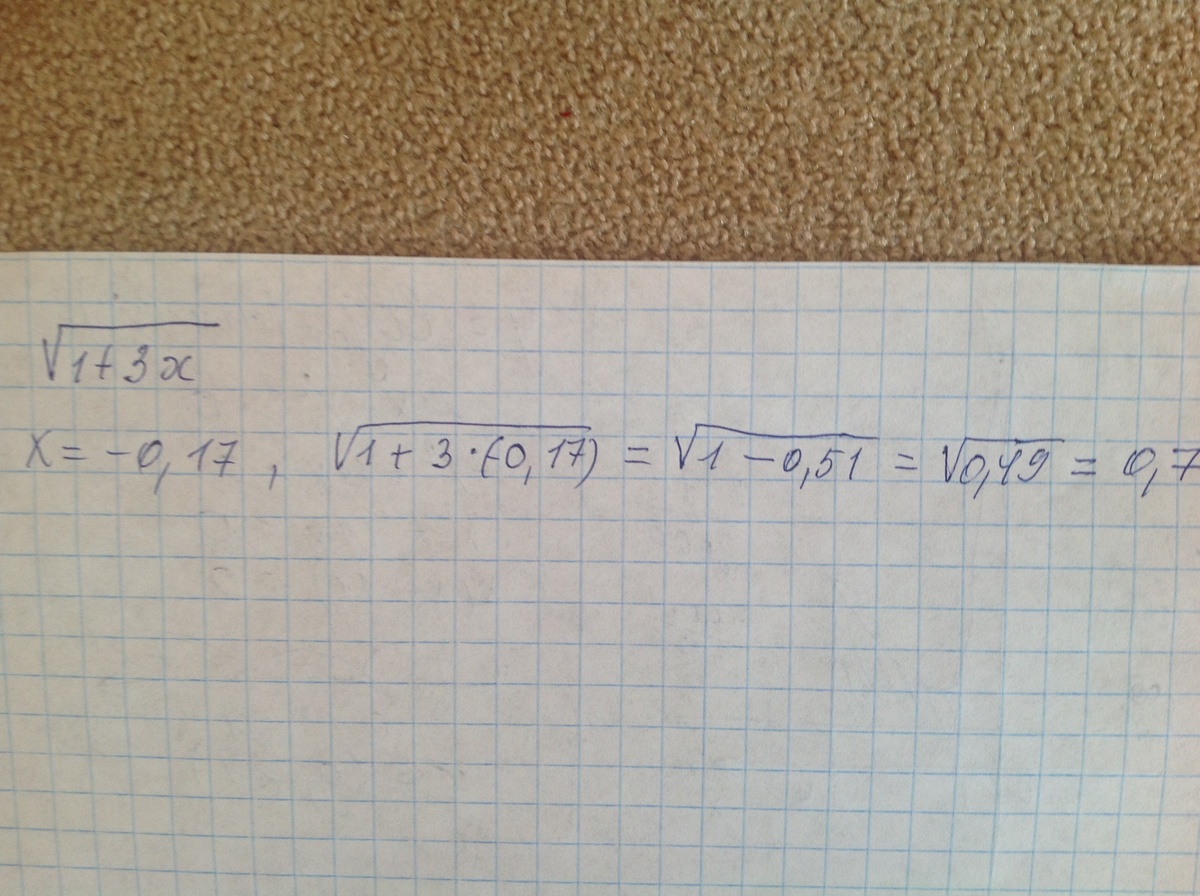 √1+3x
x = -0,17 , √1 + 3·(-0,17) = √1 - 0,51 = √0,49 = 0,7